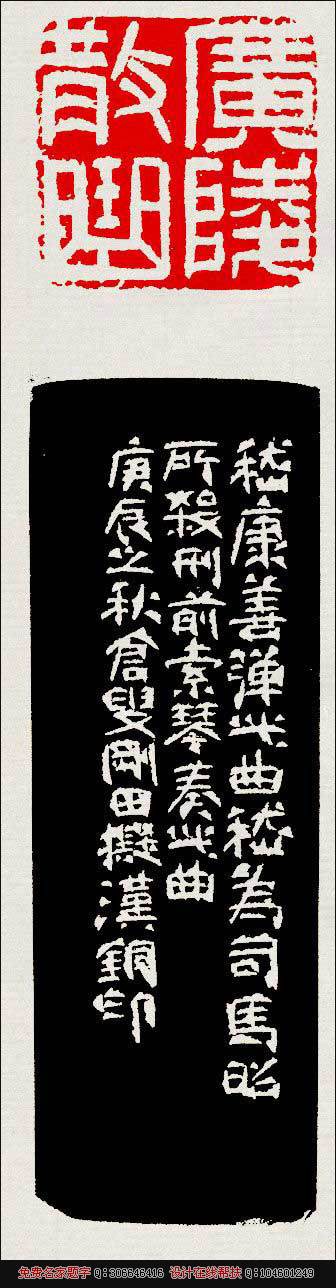 廣陵
散曲
嵇康善彈此曲嵇為司馬昭
所殺刑前索琴奏此曲
庚辰之秋倉叟剛田擬漢銅印
免费名家题字 Q:306646416 设计在线帮扶 Q:104601249